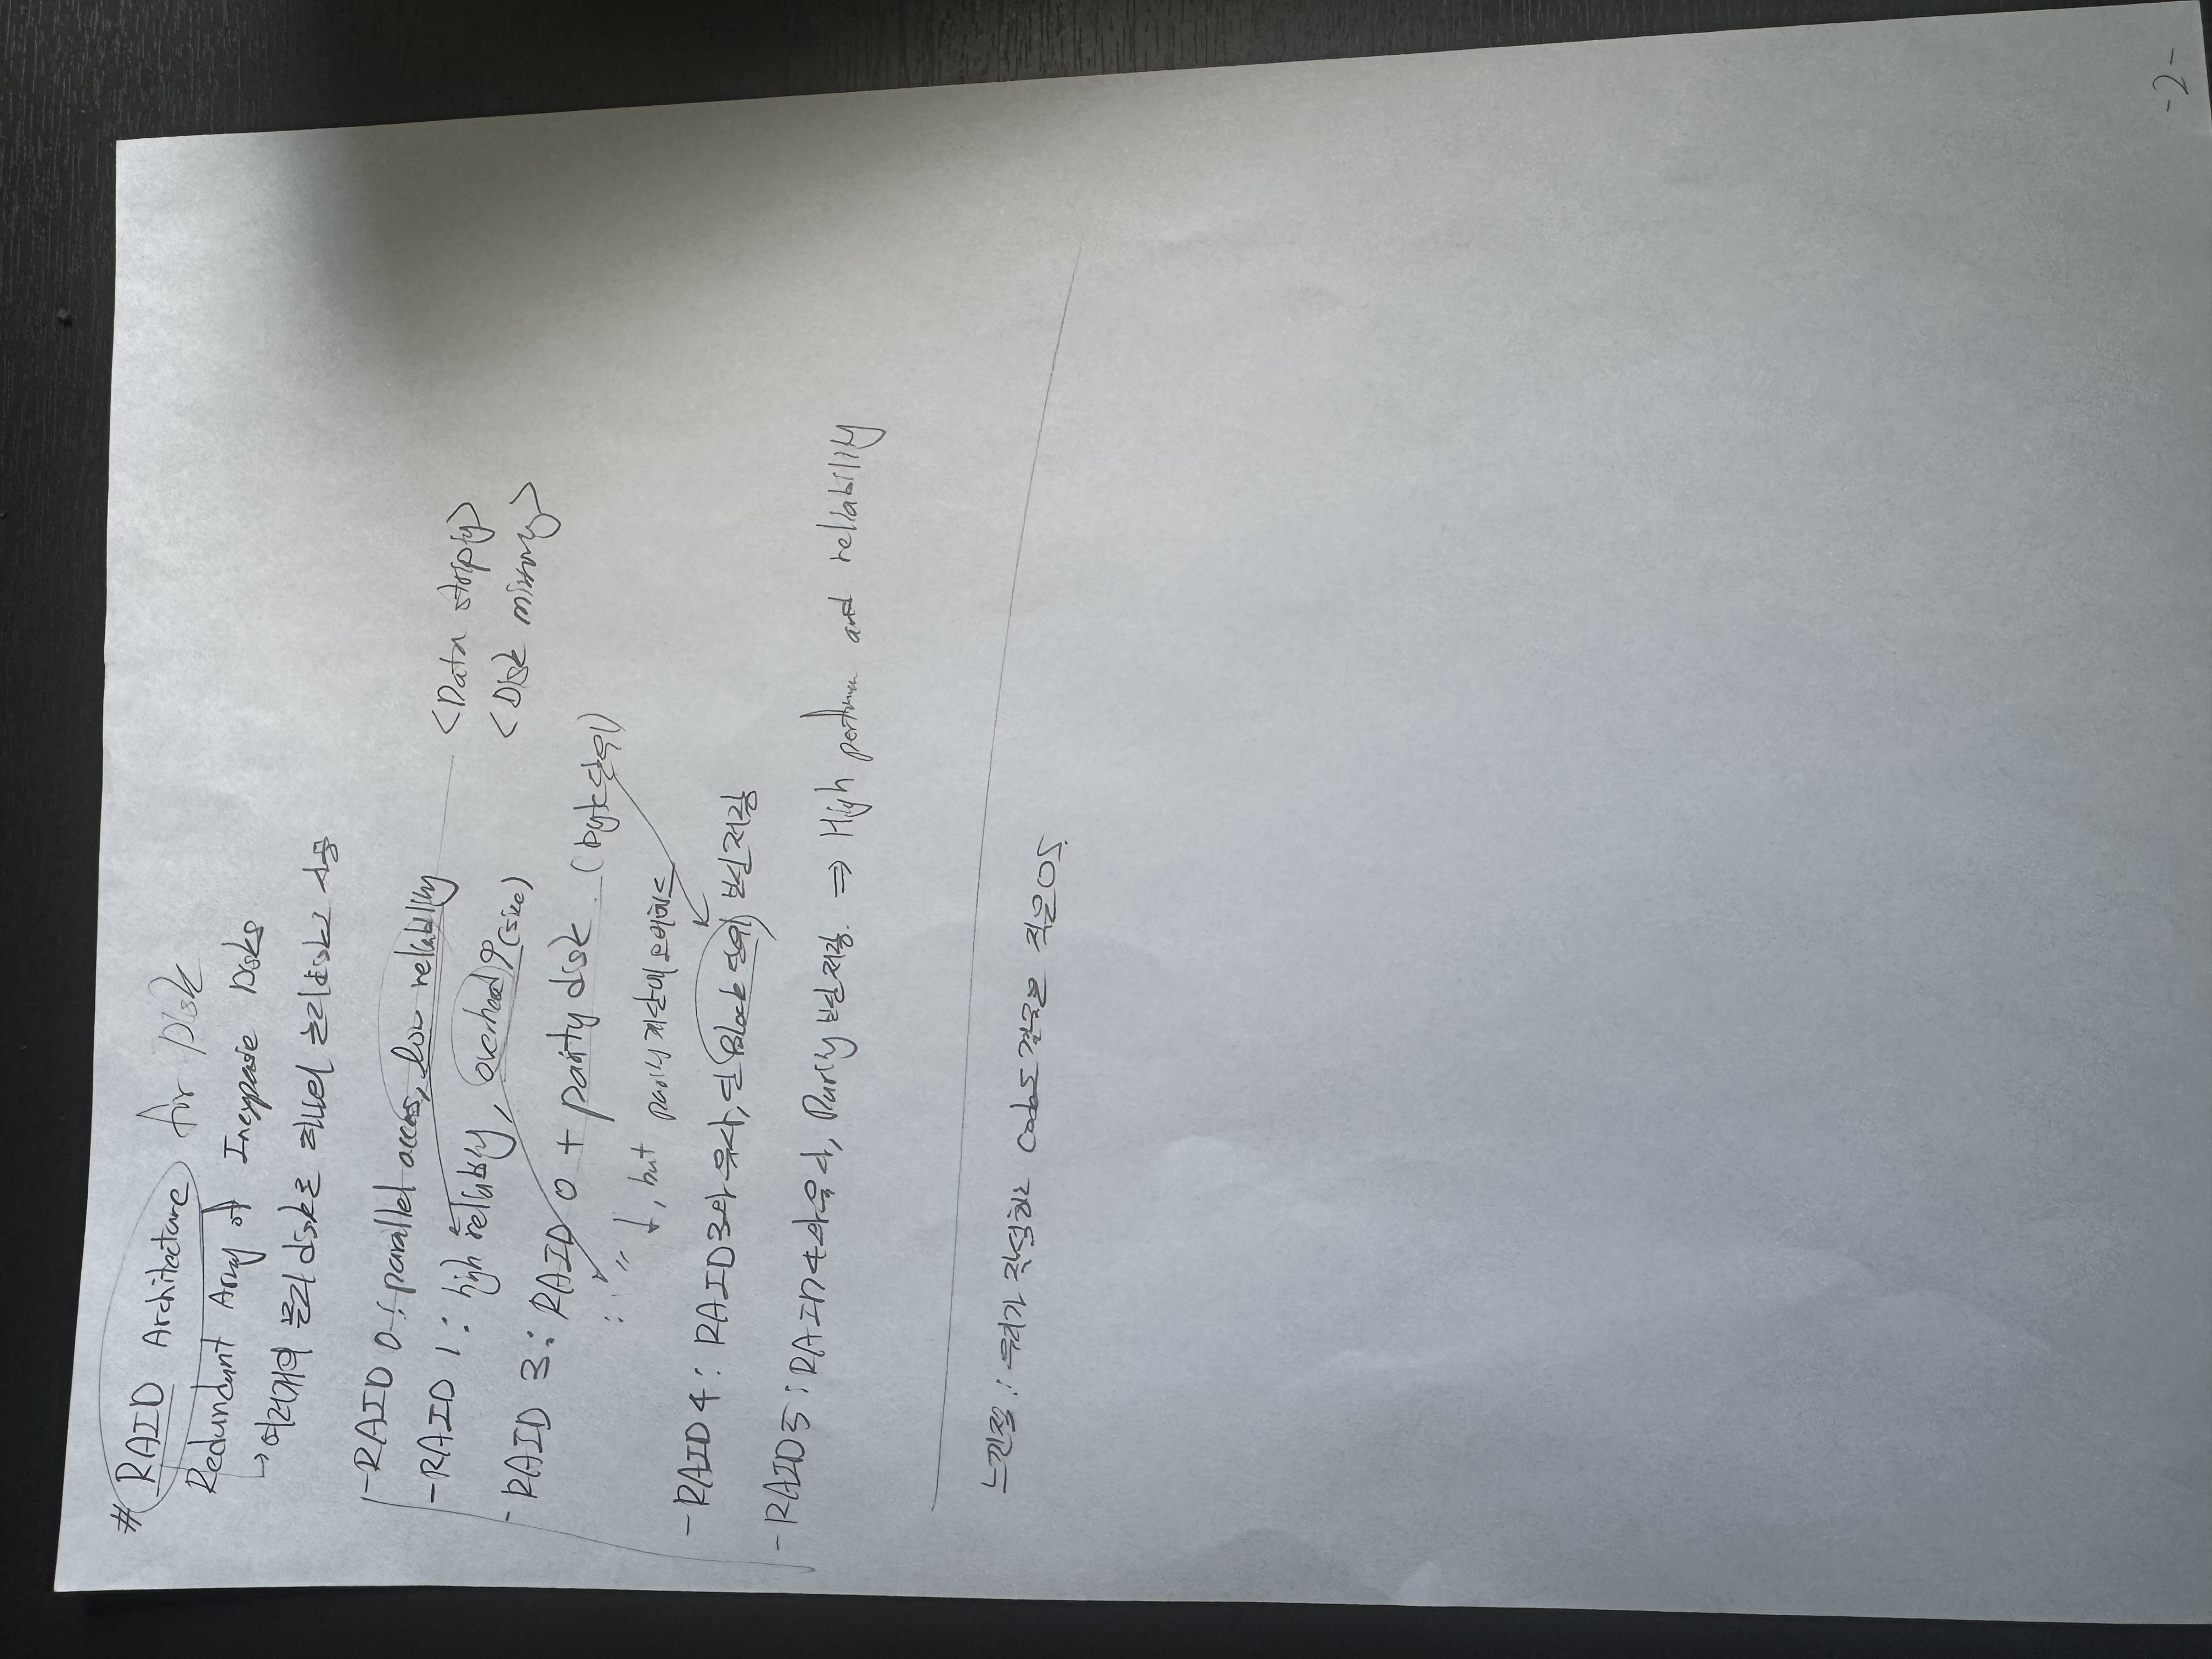 # RAID Architecture for Disk
Redundant Array of Inexpasie Disks
→ 여러개의 물리 disk를 하나의 논리 disk로 사용
-RAID 0 : parallel acces, low reliability <Data striping>
-RAID 1 : high reliability, overhead↑(size) <Disk mirroring>
-RAID 3 : RAID 0 + parity disk. (byte단위)
: 〃 ↓, but parity 계산에 오버헤드
-RAID 4 : RAID3와 유사, 단 Block 단위 분산저장
-RAID 5 : RAID4와 유사, Parity 분산저장. ⇒ High performan and reliability
느낀점 : 우리가 작성하는 Code도 결국은 작은 OS.
-2-